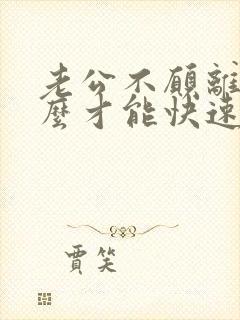 老公不愿離
麼才能快速
賈笑